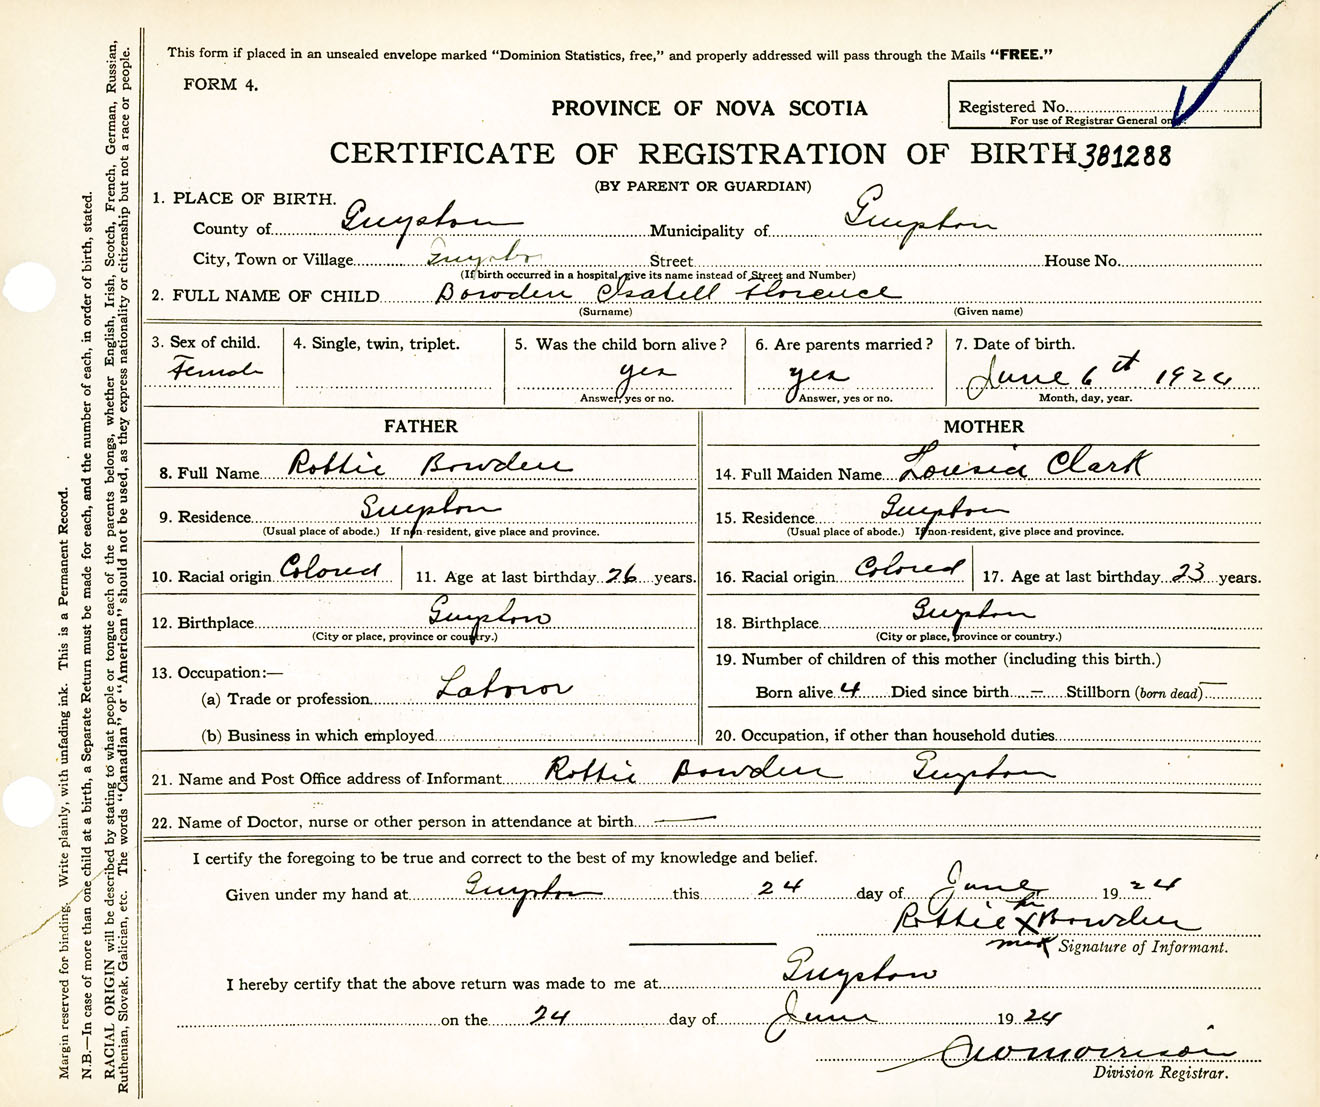 This form if placed in an unsealed envelope marked "Dominion Statistics, free," and properly addressed will pass through the Mails "FREE."
FORM 4.
PROVINCE OF NOVA SCOTIA
Registered No.
For use of Registrar General on
CERTIFICATE OF REGISTRATION OF BIRTH 381288
(BY PARENT OR GUARDIAN)
1. PLACE OF BIRTH.
County of Guysboro Municipality of Guysboro
City, Town or Village Guysboro Street House No.
(If birth occurred in a hospital, give its name instead of Street and Number)
2. FULL NAME OF CHILD Bowden Isabell Florence
(Surname) (Given name)
3. Sex of child. 4. Single, twin, triplet. 5. Was the child born alive? 6. Are parents married? 7. Date of birth.
Female yes yes June 6th 1924
Answer, yes or no. Answer, yes or no. Month, day, year.
FATHER MOTHER
8. Full Name Rottie Bowden 14. Full Maiden Name Lousia Clark
9. Residence Guysboro 15. Residence Guysboro
(Usual place of abode.) If non-resident, give place and province. (Usual place of abode.) If non-resident, give place and province.
10. Racial origin Colored 11. Age at last birthday 26 years. 16. Racial origin Colored 17. Age at last birthday 23 years.
12. Birthplace Guysboro 18. Birthplace Guysboro
(City or place, province or country.) (City or place, province or country.)
13. Occupation:— 19. Number of children of this mother (including this birth.)
(a) Trade or profession Labror Born alive 4 Died since birth — Stillborn (born dead) —
(b) Business in which employed 20. Occupation, if other than household duties
21. Name and Post Office address of Informant Rottie Bowden Guysboro
22. Name of Doctor, nurse or other person in attendance at birth —
I certify the foregoing to be true and correct to the best of my knowledge and belief.
Given under my hand at Guysboro this 24 day of June 1924
his
Rottie X Bowden
mark Signature of Informant.
I hereby certify that the above return was made to me at Guysboro
on the 24 day of June 1924
Morrison
Division Registrar.
Margin reserved for binding. Write plainly, with unfading ink. This is a Permanent Record.
N.B.—In case of more than one child at a birth, a Separate Return must be made for each, and the number of each, in order of birth, stated.
RACIAL ORIGIN will be described by stating to what people or tongue each of the parents belongs, whether English, Irish, Scotch, French, German, Russian,
Ruthenian, Slovak, Galician, etc. The words "Canadian" or "American" should not be used, as they express nationality or citizenship but not a race or people.